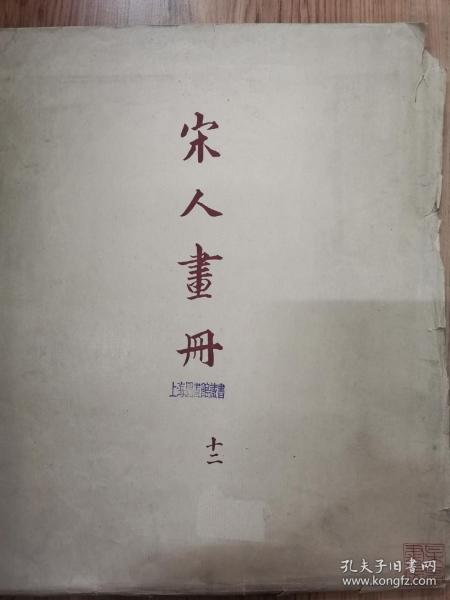 宋人畫冊
上海圖書館藏書
十二
孔夫子旧书网
www.kongfz.com